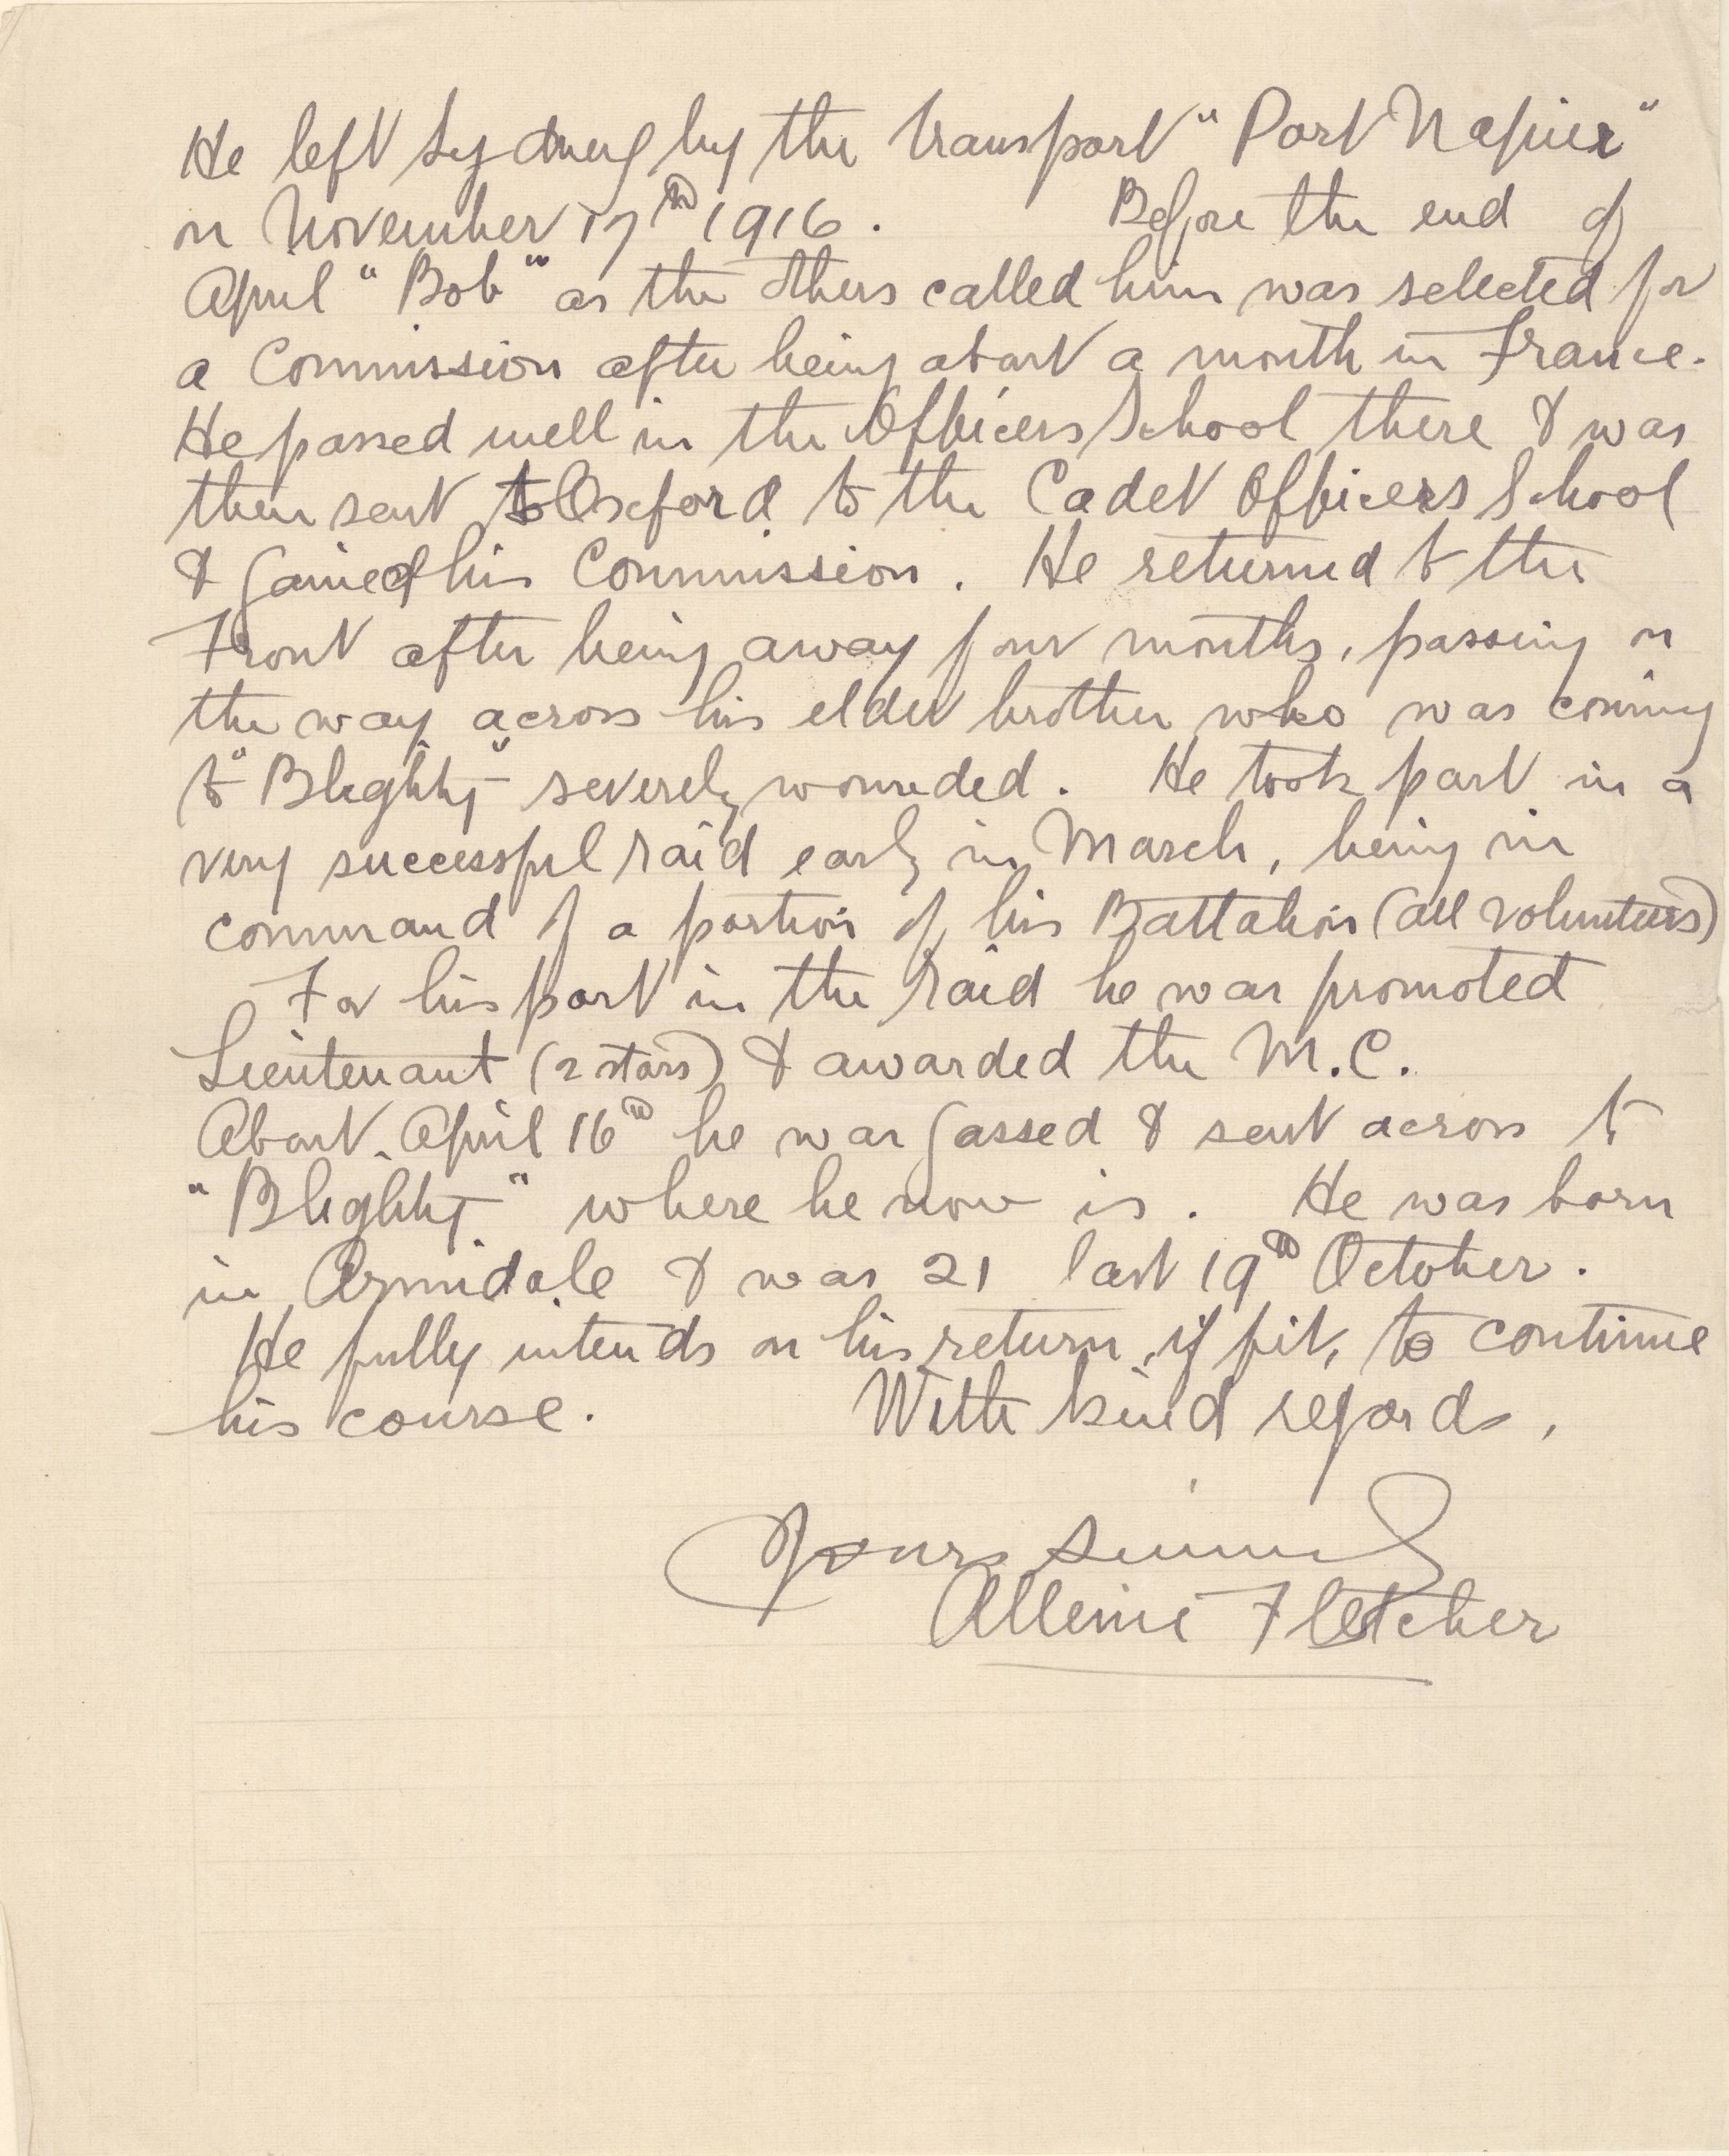 He left Sydney by the transport "Port Napier"
on November 17th 1916. Before the end of
April "Bob" as the others called him was selected for
a Commission after being about a month in France.
He passed well in the Officers School there & was
then sent to Oxford to the Cadet Officers School
& gained his Commission. He returned to the
Front after being away four months, passing on
the way across his elder brother who was coming
to "Blighty" severely wounded. He took part in a
very successful raid early in March, being in
command of a portion of his Battalion (all volunteers)
For his part in the raid he was promoted
Lieutenant (2 stars) & awarded the M.C.
About April 16th he was gassed & sent across to
"Blighty" where he now is. He was born
in Armidale & was 21 last 19th October.
He fully intends on his return, if fit, to continue
his course. With kind regards,
Yours sincerely
Alleine Fletcher